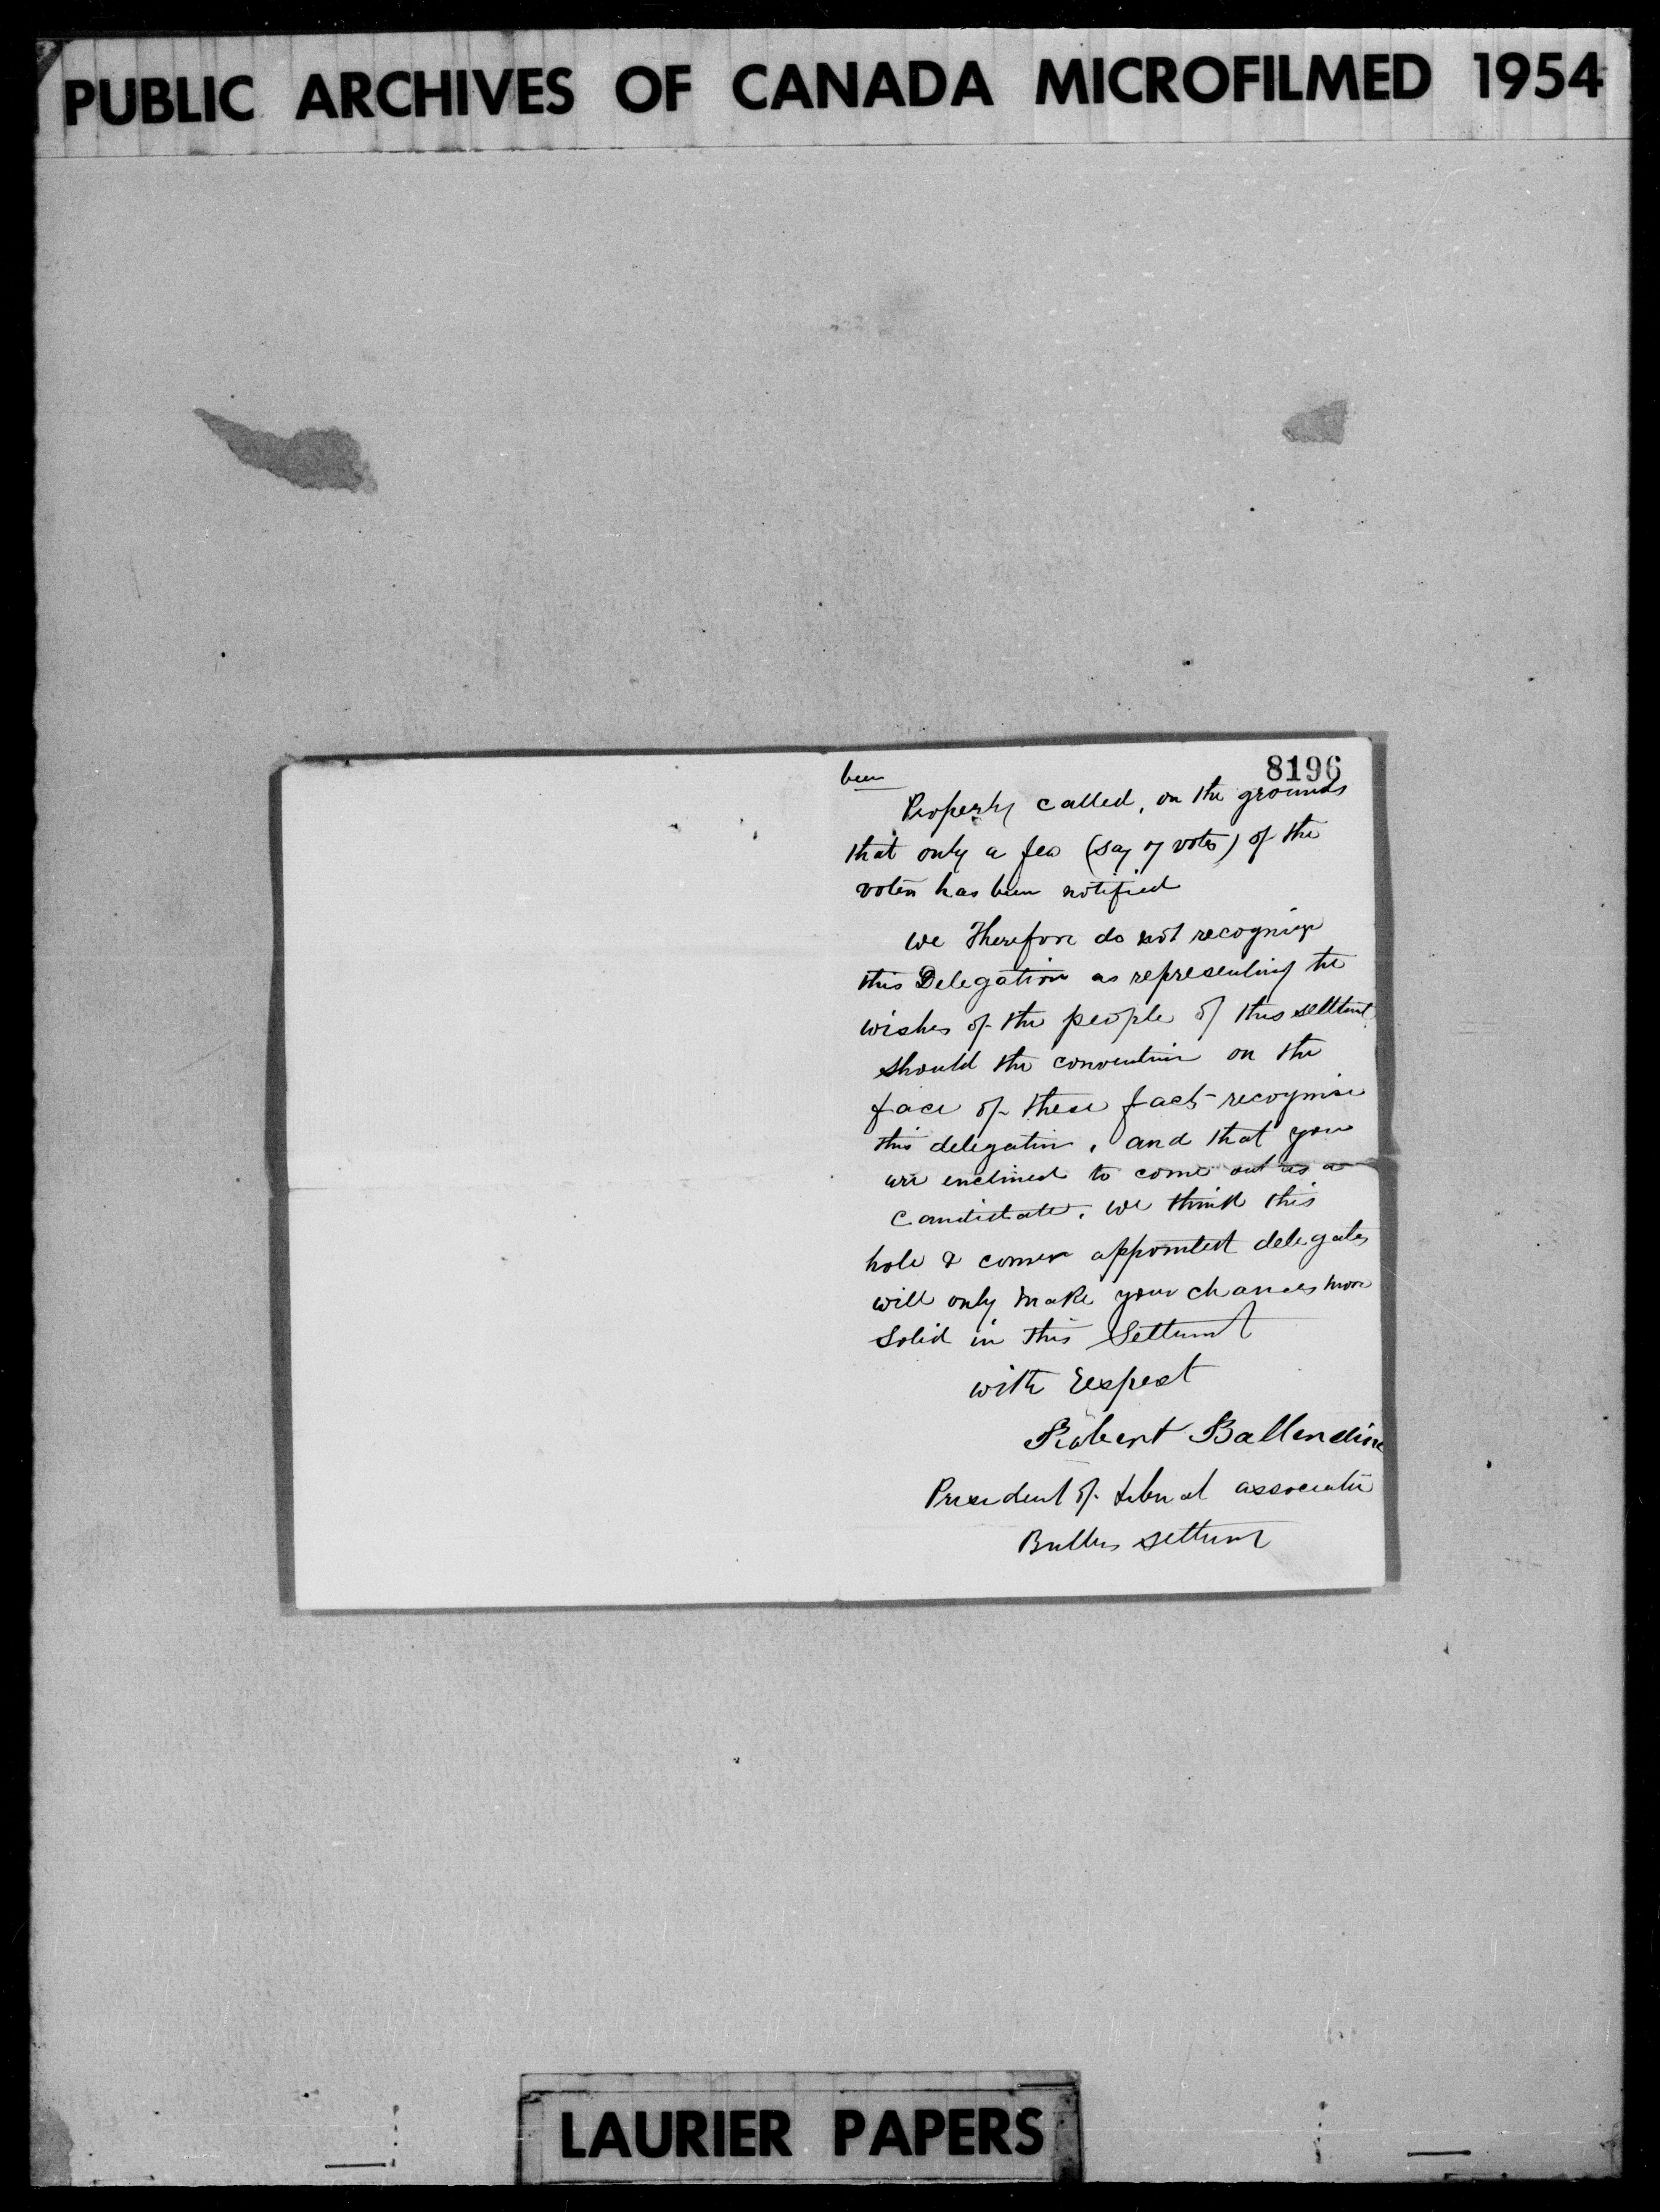 PUBLIC ARCHIVES OF CANADA MICROFILMED 1954
8196
been
Properly called, on the grounds
that only a few (say 7 votes) of the
voters has been notified
we Therefore do not recognize
this Delegation as representing the
wishes of the people of this
should the convention on the
face of these facts recognise
this delegation, and that you
are enclined to come out as a
candidate. we think this
hole & corner appointed delegates
will only make your chances more
solid in this
with respect
Robert Ballendine
President of Liberal